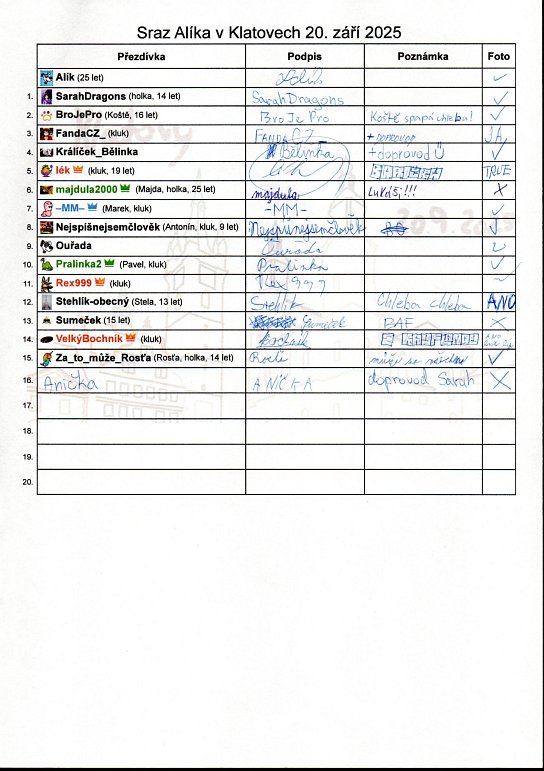 Sraz Alíka v Klatovech 20. září 2025
Přezdívka Podpis Poznámka Foto
Alík (25 let) Alík ✓
1. SarahDragons (holka, 14 let) SarahDragons ✓
2. BroJePro (Koště, 16 let) BroJePro Koště spapá chleba! ✓
3. FandaCZ_ (kluk) FANDACZ +DOPROVOD JA
4. Králíček_Bělinka Bělinka +doprovod Ü ✓
5. lék (kluk, 19 let) lék TRUE
6. majdula2000 (Majda, holka, 25 let) majdula LUKÁŠ!!! X
7. –MM– (Marek, kluk) -MM- ✓
8. Nejspíšnejsemčlověk (Antonín, kluk, 9 let) Nejspíšnejsemčlověk ✓
9. Ouřada Ouřada ✓
10. Pralinka2 (Pavel, kluk) Pralinka ✓
11. Rex999 (kluk) Rex999 ~
12. Stehlík-obecný (Stela, 13 let) Stehlík Chleba chleba ANO
13. Sumeček (15 let) Sumeček BAF X
14. VelkýBochník (kluk) Bochník
15. Za_to_může_Rosťa (Rosťa, holka, 14 let) Rosťa může za všechno ✓
16. Anička ANIČKA doprovod Sarah X
17.
18.
19.
20.